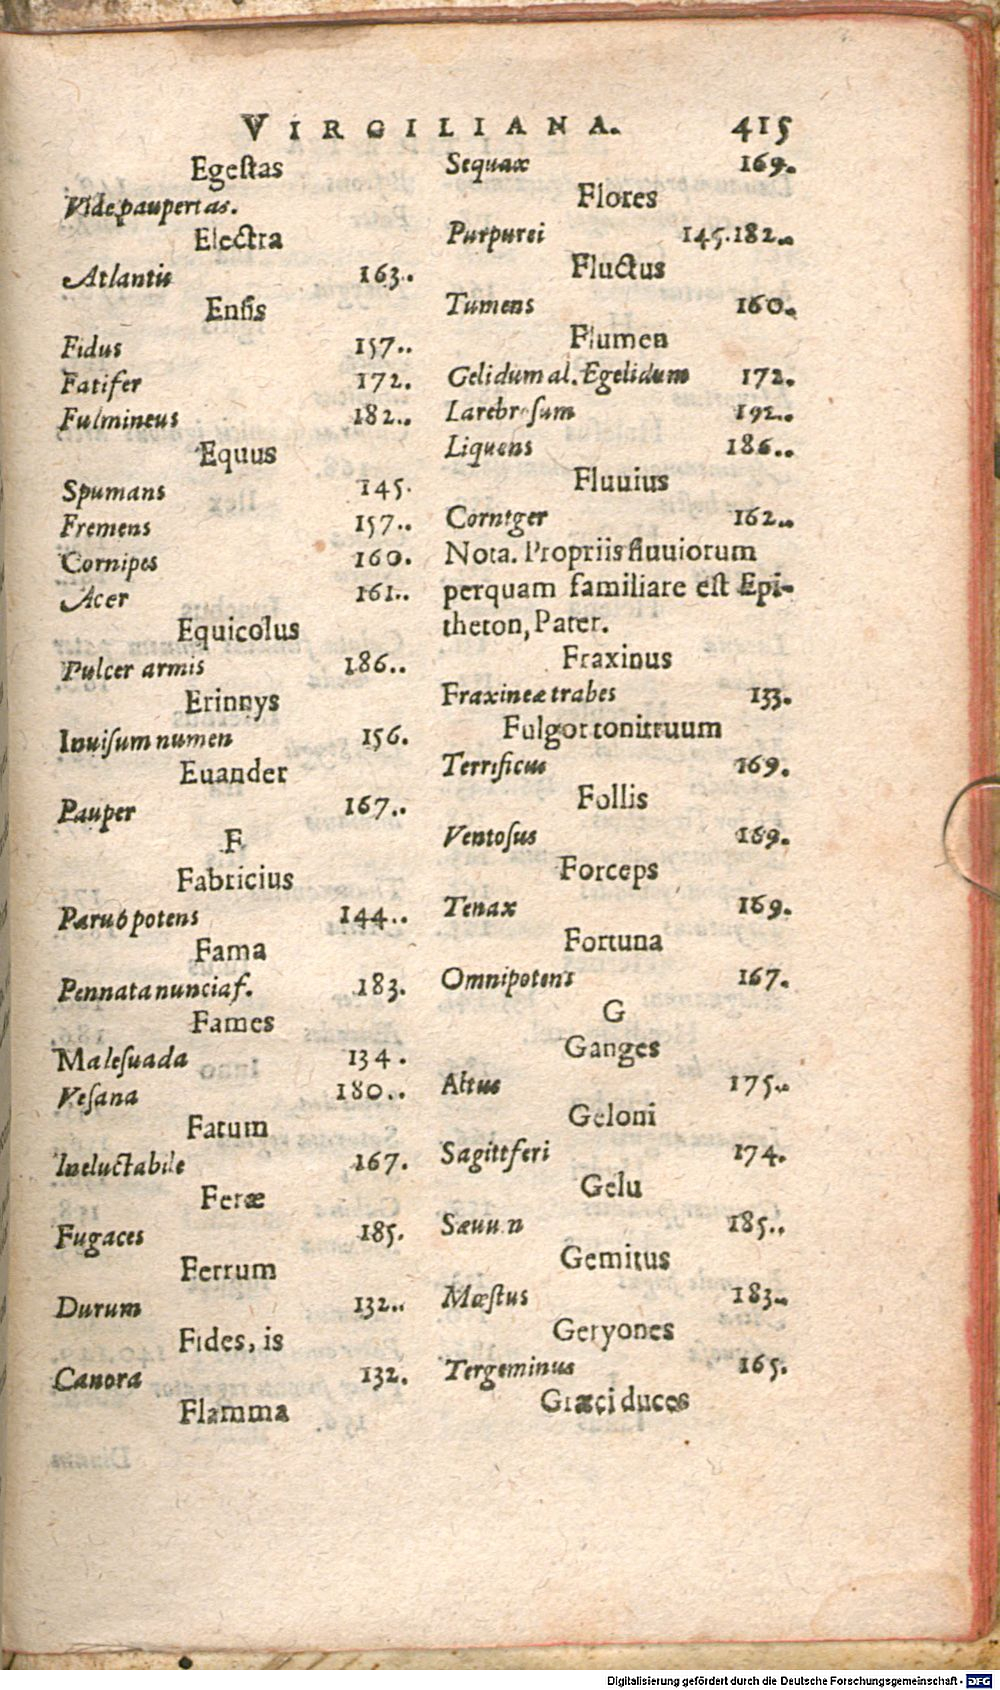 VIRGILIANA. 415
Egestas
Vide paupertas.
Electra
Atlantis 163..
Ensis
Fidus 157..
Fatifer 172.
Fulmineus 182..
Equus
Spumans 145.
Fremens 157..
Cornipes 160.
Acer 161..
Equicolus
Pulcer armis 186..
Erinnys
Inuisum numen 156.
Euander
Pauper 167..
F
Fabricius
Paruo potens 144..
Fama
Pennata nuncia f. 183.
Fames
Malesuada 134.
Vesana 180..
Fatum
Ineluctabile 167.
Feræ
Fugaces 185.
Ferrum
Durum 132..
Fides, is
Canora 132.
Flamma
Sequax 169.
Flores
Purpurei 145.182..
Fluctus
Tumens 160.
Flumen
Gelidum al. Egelidum 172.
Latebrosum 192..
Liquens 186..
Fluuius
Corniger 162..
Nota. Propriis fluuiorum
perquam familiare est Epi-
theton, Pater.
Fraxinus
Fraxineæ trabes 133.
Fulgor tonitruum
Terrificus 169.
Follis
Ventosus 169.
Forceps
Tenax 169.
Fortuna
Omnipotens 167.
G
Ganges
Altus 175..
Geloni
Sagittferi 174.
Gelu
Sæuum 185..
Gemitus
Mœstus 183..
Geryones
Tergeminus 165.
Græci duces
Digitalisierung gefördert durch die Deutsche Forschungsgemeinschaft - DFG